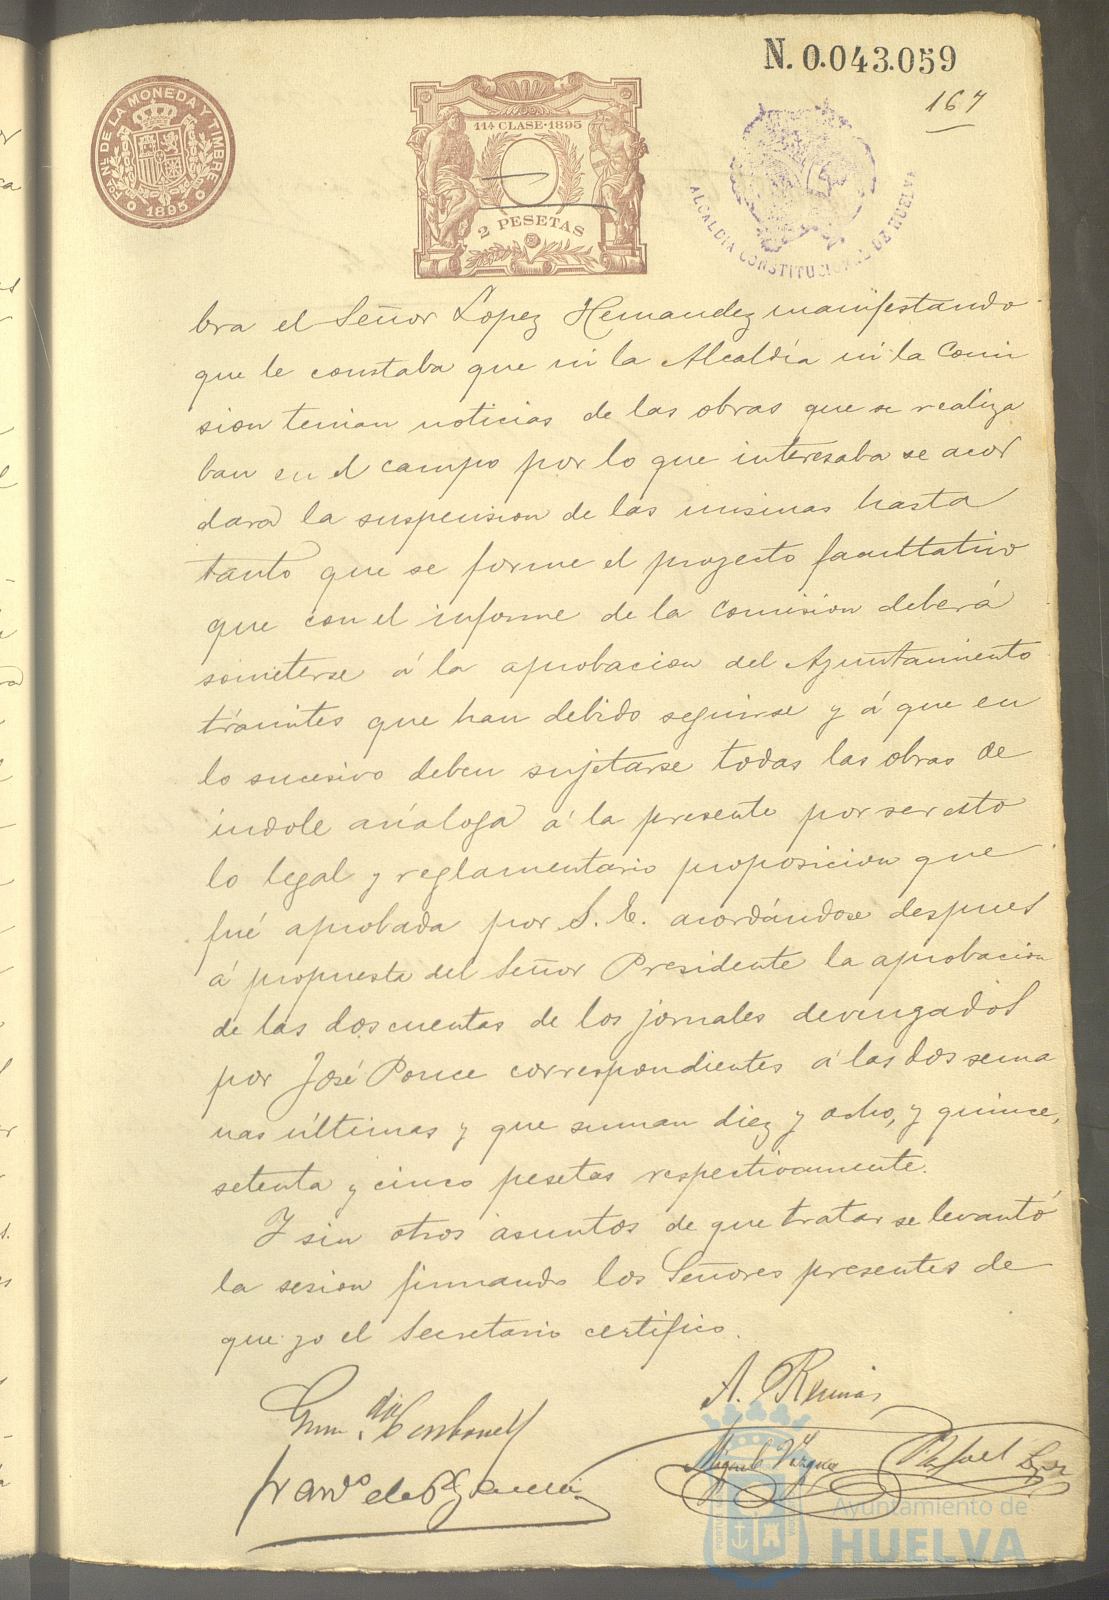 N. 0.043.059
167
FCA. NAL. DE LA MONEDA Y TIMBRE
1895
11ª CLASE·1895
2 PESETAS
ALCALDIA CONSTITUCIONAL DE HUELVA
bra el Señor Lopez Hernandez manifestando
que le constaba que ni la Alcaldía ni la Comi
sion tenian noticias de las obras que se realiza
ban en el campo por lo que interesaba se acor
dara la suspension de las mismas hasta
tanto que se forme el proyecto facultativo
que con el informe de la Comision deberá
someterse á la aprobacion del Ayuntamiento
trámites que han debido seguirse y á que en
lo sucesivo deben sujetarse todas las obras de
indole análoga á la presente por ser esto
lo legal y reglamentario proposicion que
fué aprobada por S. E. acordándose despues
á propuesta del Señor Presidente la aprobacion
de las dos cuentas de los jornales devengados
por José Ponce correspondientes á las dos sema
nas últimas y que suman diez y ocho, y quince,
setenta y cinco pesetas respectivamente.
Y sin otros asuntos de que tratar se levantó
la sesion firmando los Señores presentes de
que yo el Secretario certifico.
A.
Miguel Vazquez Rafael Lopez
Franco de P. Garcia
Ayuntamiento de
HUELVA